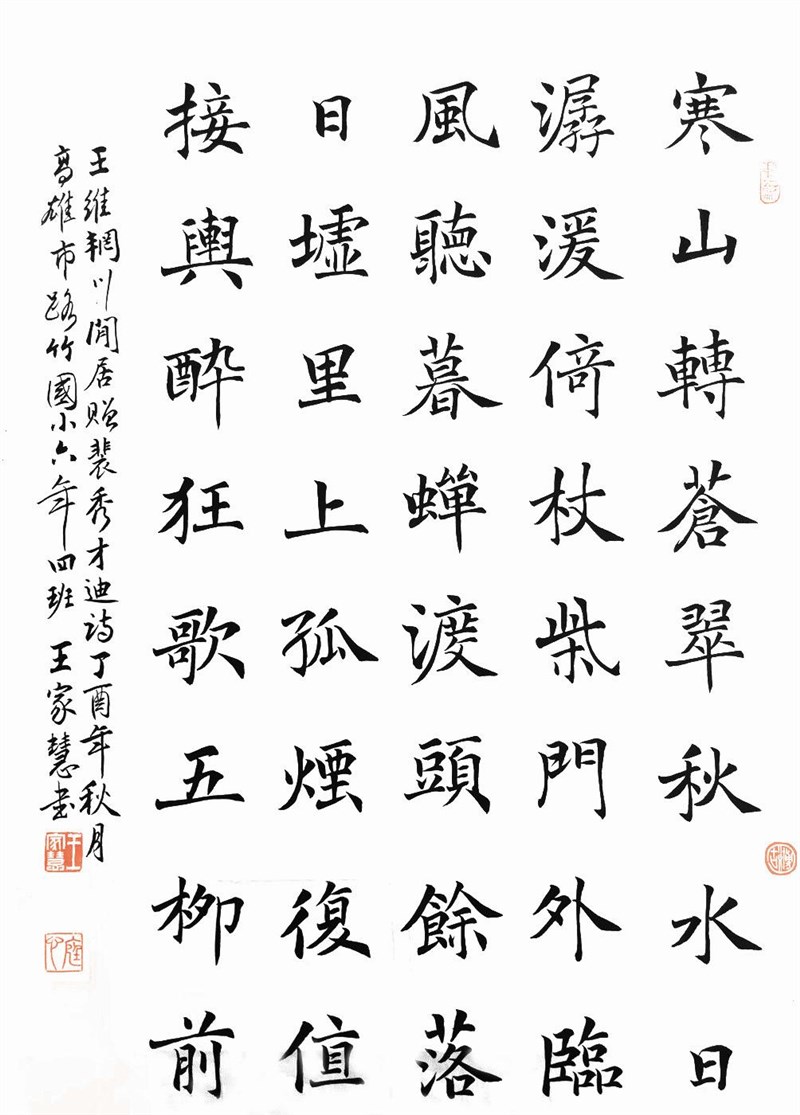 寒山轉蒼翠秋水日
潺湲倚杖柴門外臨
風聽暮蟬渡頭餘落
日墟里上孤煙復值
接輿醉狂歌五柳前
王維輞川閒居贈裴秀才迪詩丁酉年秋月
高雄市路竹國小六年四班王家慧書
王家慧